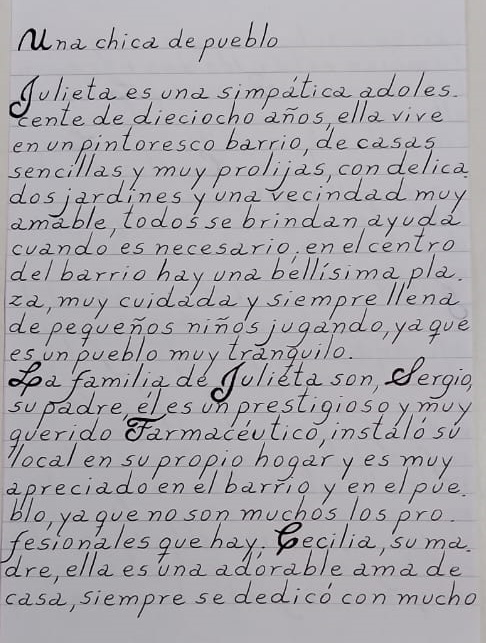 Una chica de pueblo
Julieta es una simpática adoles.
cente de dieciocho años, ella vive
en un pintoresco barrio, de casas
sencillas y muy prolijas, con delica.
dos jardines y una vecindad muy
amable, todos se brindan ayuda
cuando es necesario, en el centro
del barrio hay una bellísima pla.
za, muy cuidada y siempre llena
de pequeños niños jugando, ya que
es un pueblo muy tranquilo.
La familia de Julieta son, Sergio,
su padre, él es un prestigioso y muy
querido Farmacéutico, instaló su
local en su propio hogar y es muy
apreciado en el barrio y en el pue.
blo, ya que no son muchos los pro.
fesionales que hay, Cecilia, su ma.
dre, ella es una adorable ama de
casa, siempre se dedicó con mucho